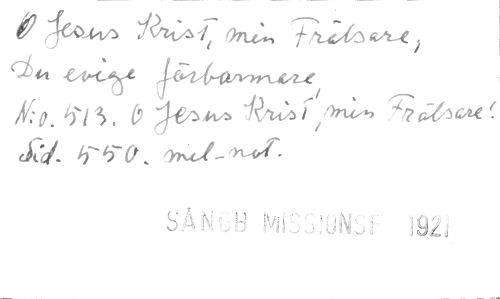 O Jesus Krist, min Frälsare,
Du evige förbarmare,
N:o. 513. O Jesus Krist, min Frälsare!
Sid. 550. mel-not.
SÅNGB MISSIONSF 1921